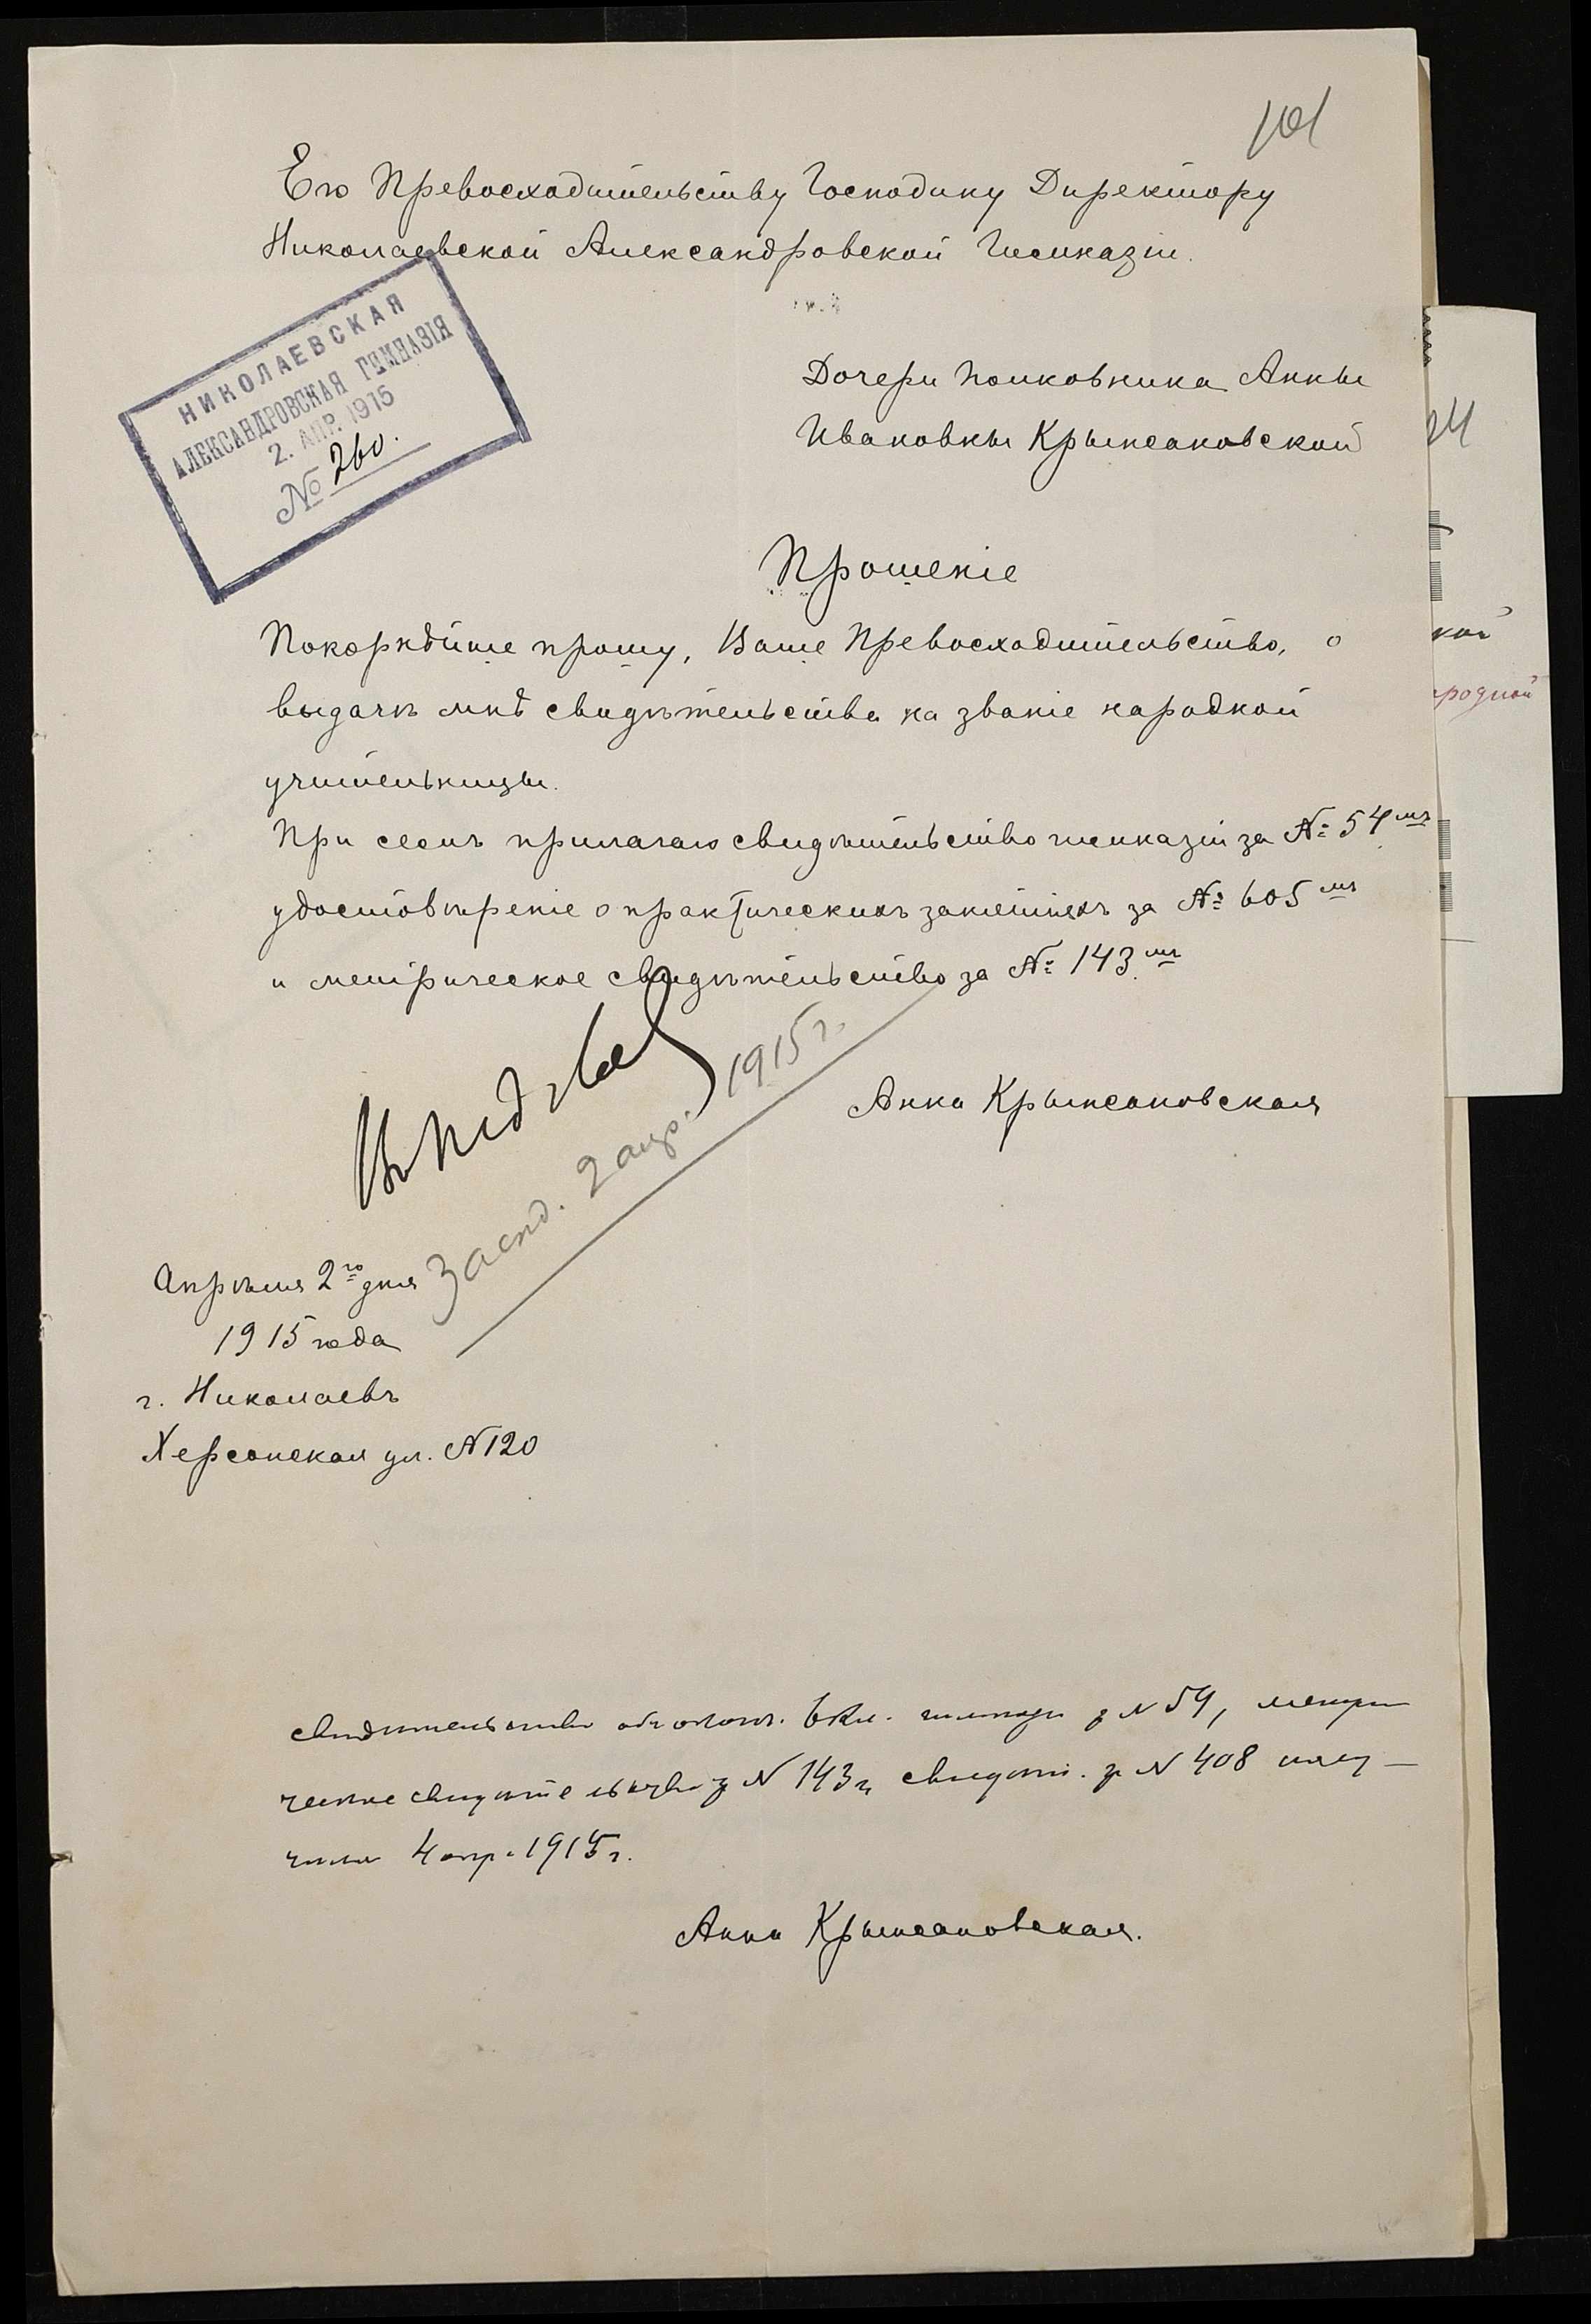 101
Его Превосходительству Господину Директору
Николаевской Александровской Гимназіи.
НИКОЛАЕВСКАЯ
АЛЕКСАНДРОВСКАЯ ГИМНАЗІЯ
2. АПР. 1915
№ 260.
Дочери полковника Анны
Ивановны Крыжановской
Прошеніе
Покорнѣйше прошу, Ваше Превосходительство, о
выдачѣ мнѣ свидѣтельства на званіе народной
учительницы.
При семъ прилагаю свидѣтельство гимназіи за № 54мъ
удостовѣреніе о практическихъ занятіяхъ за № 605мъ
и метрическое свидѣтельство за № 143мъ
1915 г.
Анна Крыжановская
2 апр.
Апрѣля 2го дня
1915 года
г. Николаевъ
Херсонская ул. № 120
свидѣтельство объ оконч. 6 кл. гимназіи з № 54, метри
ческое свидѣтельство з № 143 и свидѣт. з № 408 полу-
чила 4 апр. 1915 г.
Анна Крыжановская.
кой
родной